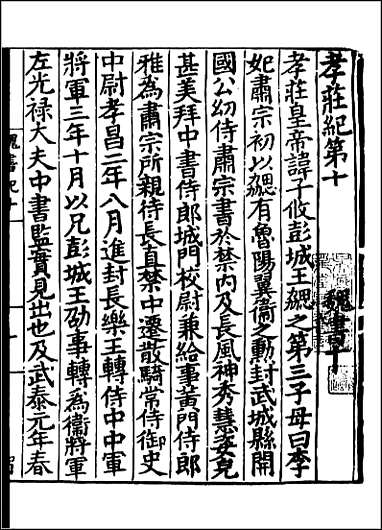 孝莊紀第十　魏書十
孝莊皇帝諱子攸彭城王勰之第三子母曰李
妃肅宗初以勰有魯陽翼衛之勳封武城縣開
國公幼侍肅宗書於禁內及長風神秀慧姿皃
甚美拜中書侍郎城門校尉兼給事黃門侍郎
雅為肅宗所親待長直禁中遷散騎常侍御史
中尉孝昌二年八月進封長樂王轉侍中中軍
將軍三年十月以兄彭城王劭事轉為衛將軍
左光祿大夫中書監實見出也及武泰元年春
魏書紀十